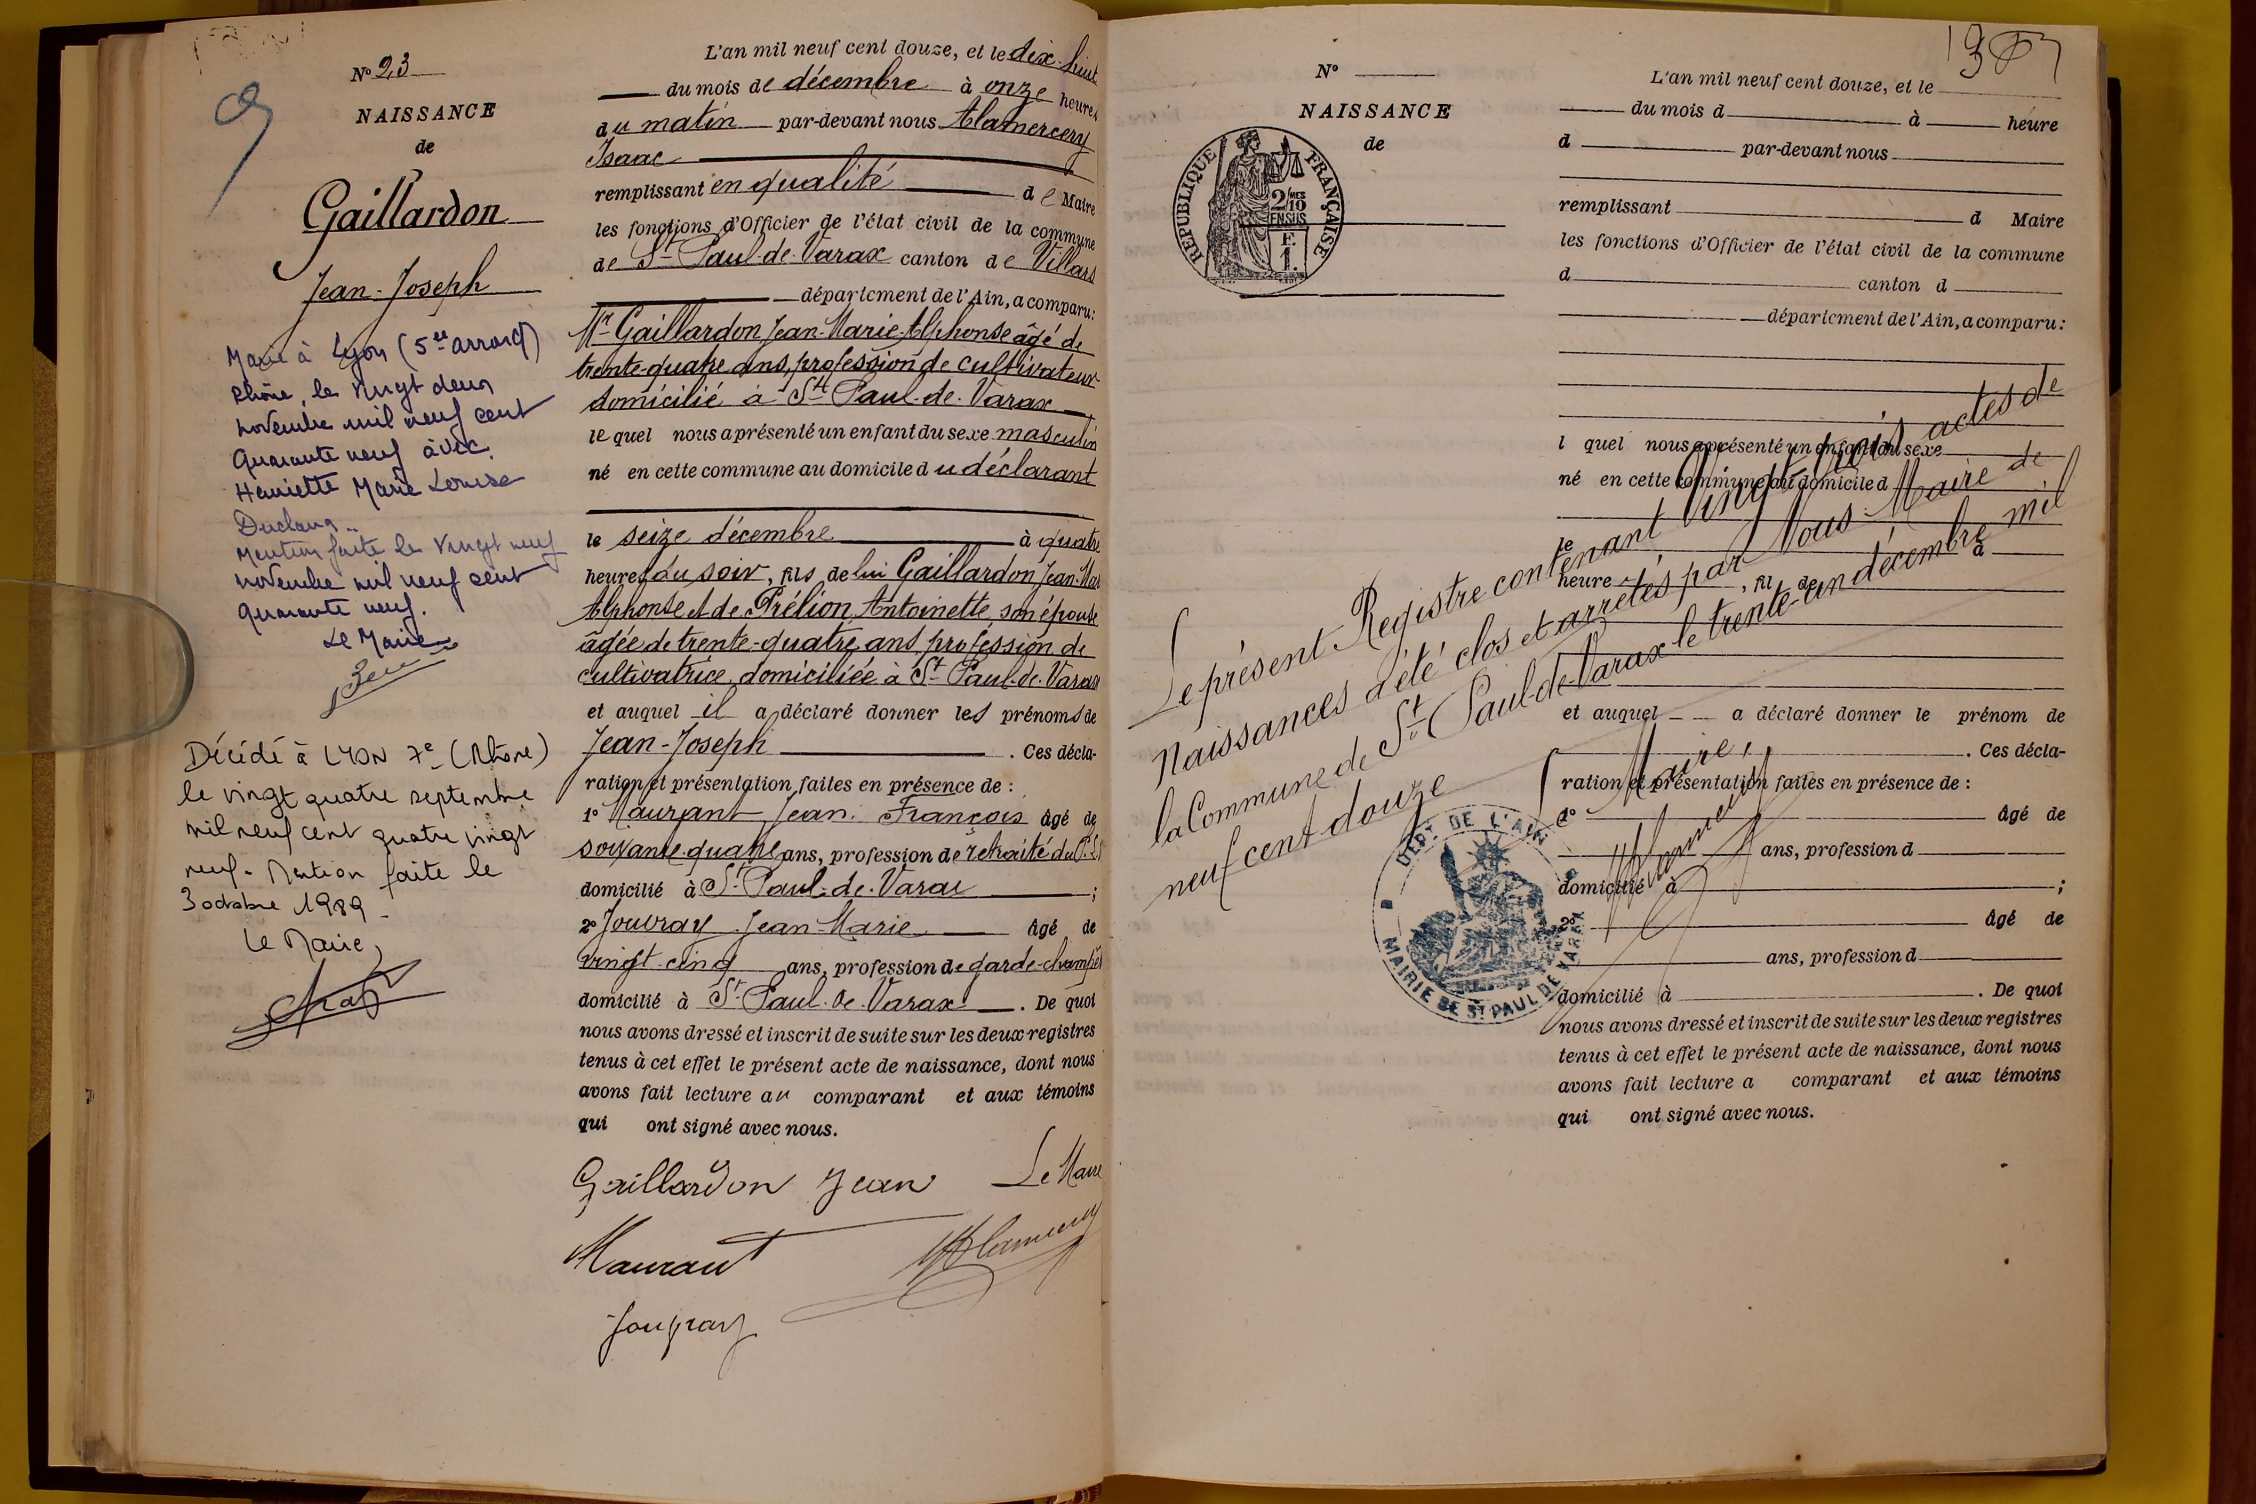 N° 23
NAISSANCE
de
Gaillardon
Jean-Joseph
Marié à Lyon (5e arrondt)
Rhône, le vingt deux
novembre mil neuf cent
quarante neuf avec
Henriette Marie Louise
Mention faite le vingt neuf
novembre mil neuf cent
quarante neuf.
Le Maire
Décédé à LYON 7e (Rhône)
le vingt quatre septembre
mil neuf cent quatre vingt
neuf. Mention faite le
3 octobre 1989.
Le Maire,
L'an mil neuf cent douze, et le dix-huit
du mois de décembre à onze heures
du matin par-devant nous Alamercery
Isaac
remplissant en qualité de Maire
les fonctions d'Officier de l'état civil de la commune
de St Paul-de-Varax canton de Villars
département de l'Ain, a comparu:
Mr Gaillardon Jean-Marie-Alphonse âgé de
trente-quatre ans, profession de cultivateur
domicilié à St Paul-de-Varax
lequel nous a présenté un enfant du sexe masculin
né en cette commune au domicile du déclarant
le seize décembre à quatre
heures du soir, fils de lui Gaillardon Jean-Mar
Alphonse et de Prélion Antoinette, son épouse
âgée de trente-quatre ans, profession de
cultivatrice, domiciliée à St Paul-de-Varax
et auquel il a déclaré donner les prénoms de
Jean-Joseph . Ces décla-
ration et présentation faites en présence de :
1° Maurant Jean François âgé de
soixante-quatre ans, profession de retraité du P.L.
domicilié à St Paul-de-Varax ;
2° Jouvray Jean-Marie âgé de
vingt-cinq ans, profession de garde-champêt
domicilié à St Paul-de-Varax . De quoi
nous avons dressé et inscrit de suite sur les deux registres
tenus à cet effet le présent acte de naissance, dont nous
avons fait lecture au comparant et aux témoins
qui ont signé avec nous.
Gaillardon Jean Le Maire
Maurant Alamercery
Jouvray
N°
NAISSANCE
de
RÉPUBLIQUE FRANÇAISE
2/10 EN SUS
L'an mil neuf cent douze, et le
du mois d à heure
d par-devant nous
remplissant d Maire
les fonctions d'Officier de l'état civil de la commune
d canton d
département de l'Ain, a comparu:
l quel nous a présenté un enfant du sexe
né en cette commune au domicile d
le à
heure , fil de
et auquel a déclaré donner le prénom de
. Ces décla-
ration et présentation faites en présence de :
1° âgé de
ans, profession d
domicilié à ;
2° âgé de
ans, profession d
domicilié à . De quoi
nous avons dressé et inscrit de suite sur les deux registres
tenus à cet effet le présent acte de naissance, dont nous
avons fait lecture a comparant et aux témoins
qui ont signé avec nous.
Le présent Registre contenant Vingt-trois actes de
Naissances a été clos et arrêtés par Nous Maire de
la Commune de St Paul-de-Varax le trente-un décembre mil
neuf cent douze
Maire,
Alamercery
DÉPT DE L'AIN
MAIRIE DE ST PAUL DE VARAX